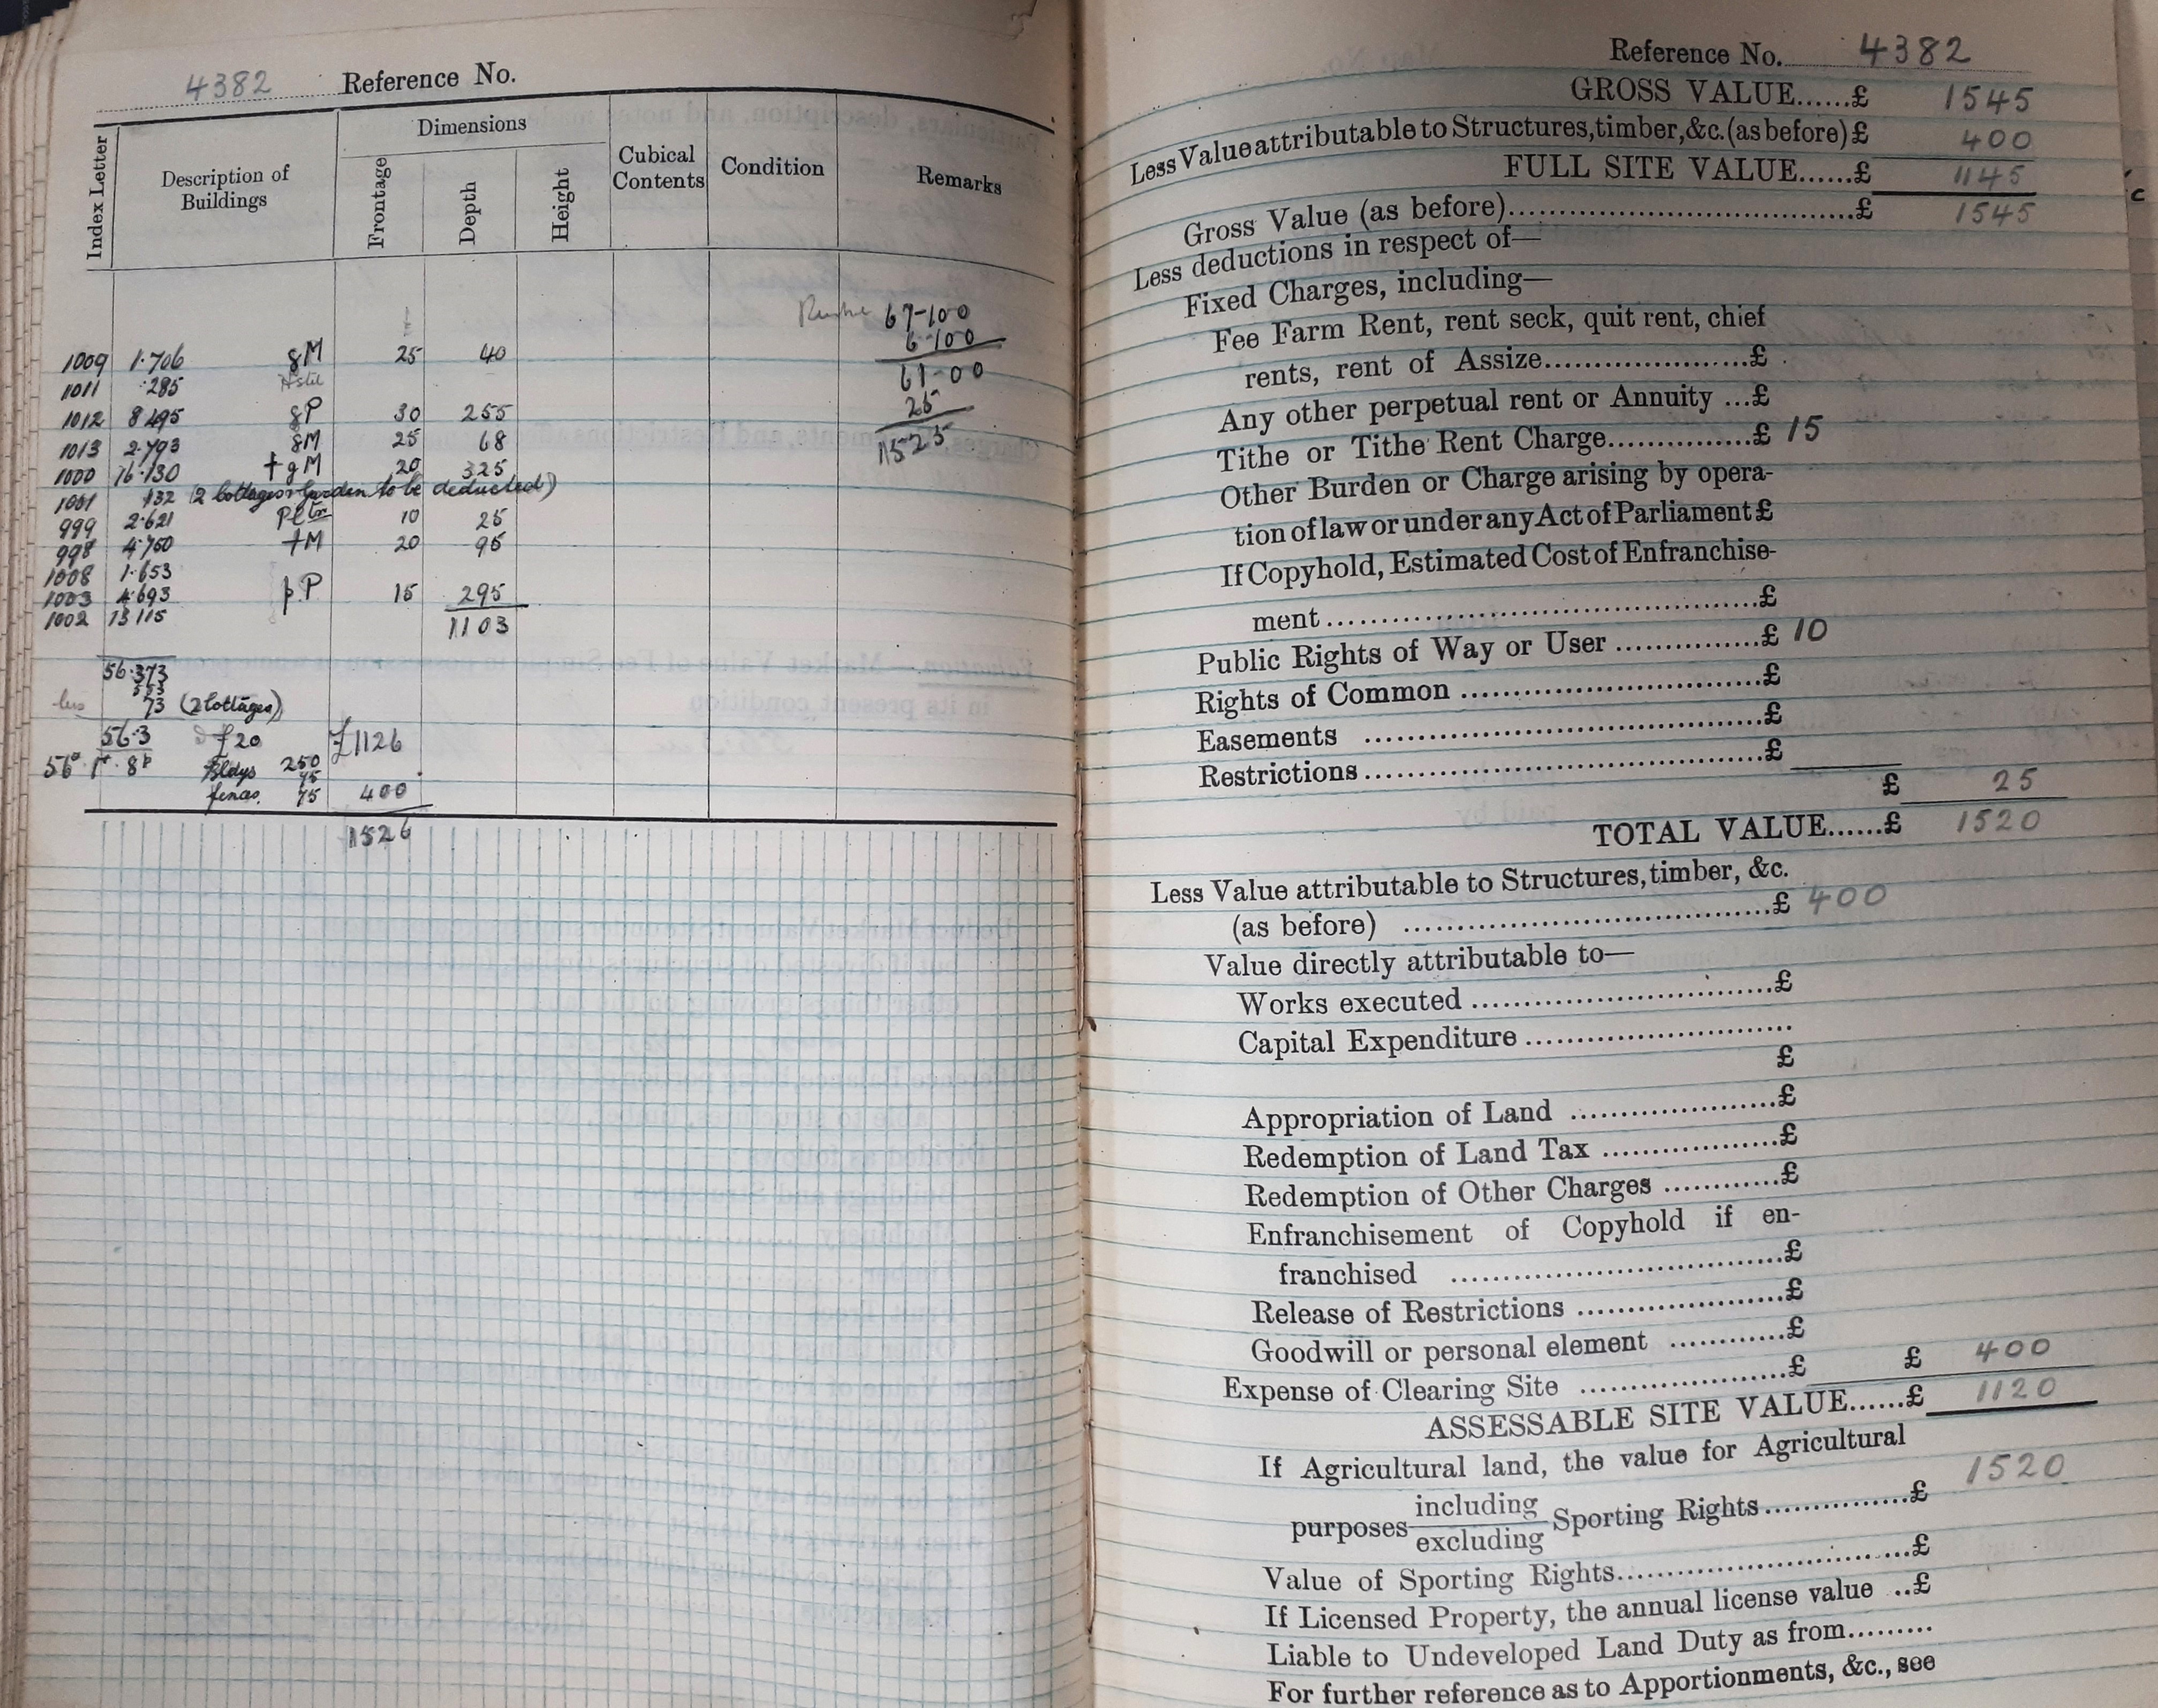 4382 Reference No.
Index Letter
Description of Buildings
Dimensions
Frontage
Depth
Height
Cubical Contents
Condition
Remarks
67-100
6-100
61-00
25
1525
1009 1·706 gM 25 40
1011 ·285
1012 8 495 gP 30 255
1013 2·793 gM 25 68
1000 16·130 + gM 20 325
1001 ·132 (2 Cottages & Garden to be deducted)
999 2·621 10 25
998 4·750 +M 20 95
1008 1·653
1003 4·693 p.P 15 295
1002 13 115 1103
56·373
less 73 (2 Cottages)
56·3 £20 £1126
56a 1r 8p Bldgs 250
75
fences 75 400
1526
Reference No. 4382
GROSS VALUE......£ 1545
Less Value attributable to Structures, timber, &c. (as before) £ 400
FULL SITE VALUE......£ 1145
Gross Value (as before)..........£ 1545
Less deductions in respect of—
Fixed Charges, including—
Fee Farm Rent, rent seck, quit rent, chief
rents, rent of Assize..........£
Any other perpetual rent or Annuity ...£
Tithe or Tithe Rent Charge..........£ 15
Other Burden or Charge arising by opera-
tion of law or under any Act of Parliament £
If Copyhold, Estimated Cost of Enfranchise-
ment..........£
Public Rights of Way or User ..........£ 10
Rights of Common ..........£
Easements ..........£
Restrictions..........£
£ 25
TOTAL VALUE......£ 1520
Less Value attributable to Structures, timber, &c.
(as before) ..........£ 400
Value directly attributable to—
Works executed ..........£
Capital Expenditure ..........
£
Appropriation of Land ..........£
Redemption of Land Tax ..........£
Redemption of Other Charges ..........£
Enfranchisement of Copyhold if en-
franchised ..........£
Release of Restrictions ..........£
Goodwill or personal element ..........£
Expense of Clearing Site ..........£ £ 400
ASSESSABLE SITE VALUE......£ 1120
If Agricultural land, the value for Agricultural
purposes including
excluding Sporting Rights..........£ 1520
Value of Sporting Rights..........£
If Licensed Property, the annual license value ..£
Liable to Undeveloped Land Duty as from.........
For further reference as to Apportionments, &c., see